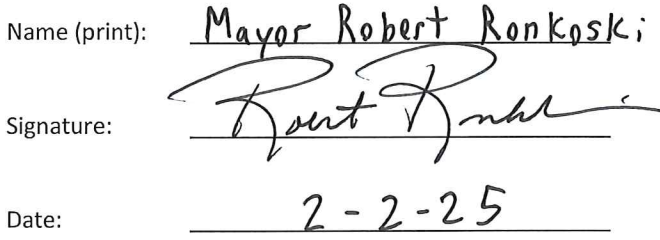 Name (print): Mayor Robert Ronkoski
Signature: Robert
Date: 2-2-25